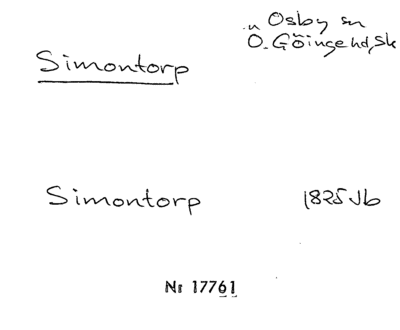 Osby sn
Simontorp
Ö. Göinge hd, Sk
Simontorp 1825 Jb
Nr 17761